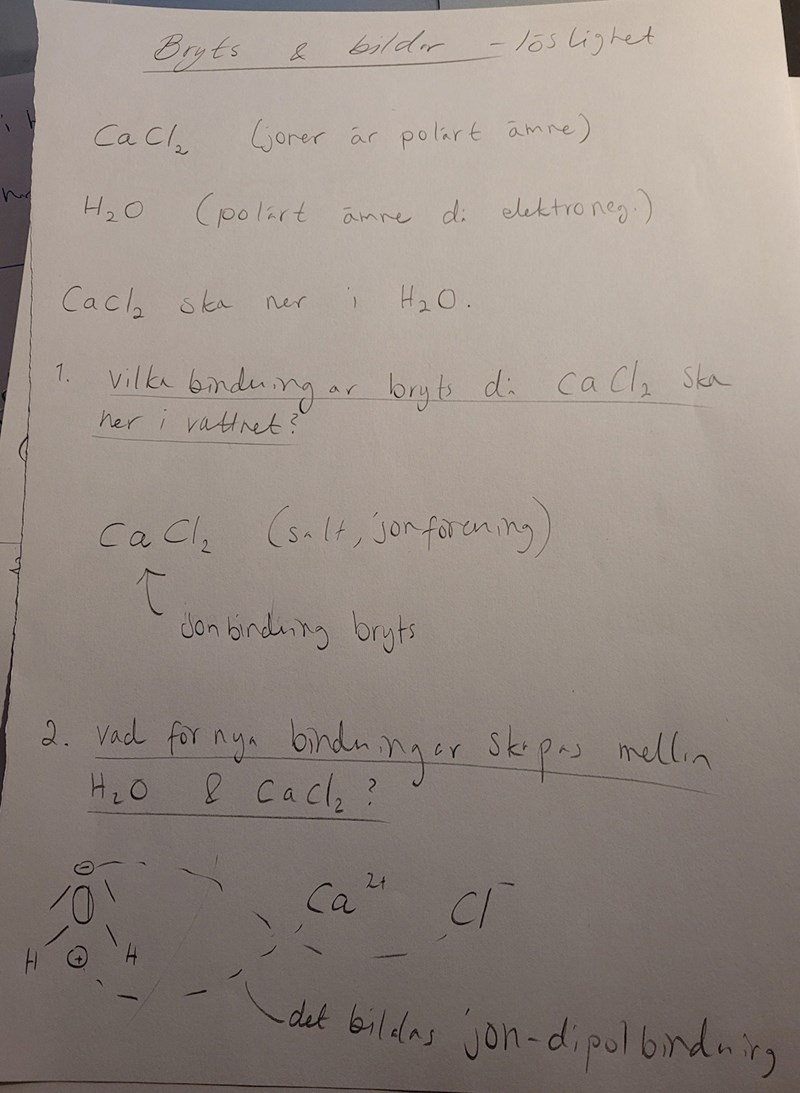 Bryts & bildar - löslighet
CaCl₂ (joner är polärt ämne)
H₂O (polärt ämne då elektroneg.)
CaCl₂ ska ner i H₂O.
1. Vilka bindningar bryts då CaCl₂ ska
ner i vattnet?
CaCl₂ (salt, jonförening)
Jonbindning bryts
2. Vad för nya bindningar skapas mellan
H₂O & CaCl₂?
⊖
O Ca²⁺ Cl⁻
H ⊕ H
det bildas jon-dipolbindning